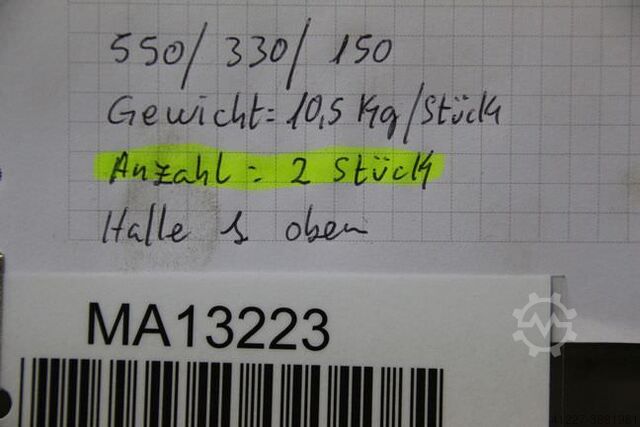 550/330/150
Gewicht = 10,5 Kg/Stück
Anzahl = 2 Stück
Halle oben
MA13223